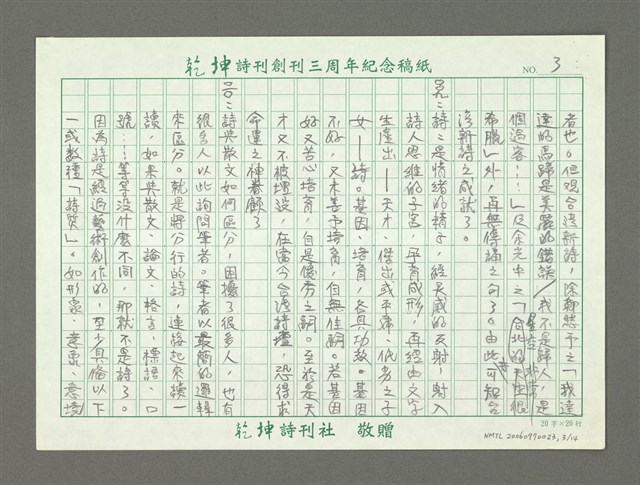 乾坤詩刊創刊三周年紀念稿紙
NO. 3
者也。但观台湾新詩,除鄭愁予之「我達
達的馬蹄是美麗的錯誤/我不是歸人是
個過客……」及余光中之「台北的天空很
星空非常
希臘」外,再無傳誦之句了。由此可知台
湾新詩之成就了。
吳:詩:是情緒的精子,經天威的天射,射入
詩人思維的子宮,孕育成形,再經由文字
生產出——天才、傑出或平庸、低劣之子
女——詩。基因、培育,各具功效。基因
不好,又未善予培育,自無佳嗣。若基因
好又苦心培育,自是優秀之嗣。至於是天
才又不被埋沒,在當今台湾詩壇,恐得求
命運之神眷顧了
呂:詩與散文如何區分,困擾了很多人,也有
很多人以此詢問筆者。筆者以最簡的邏輯
來區分。就是將分行的詩,連接起來讀一
讀,如果與散文、論文、格言、標語、口
號……等等沒什麼不同,那就不是詩了。
因為詩是經過藝術創作的,至少具備以下
一或數種「詩質」。如形象、意象、意境
20字×20行
乾坤詩刊社 敬贈
NMTL 20060970023, 3/14